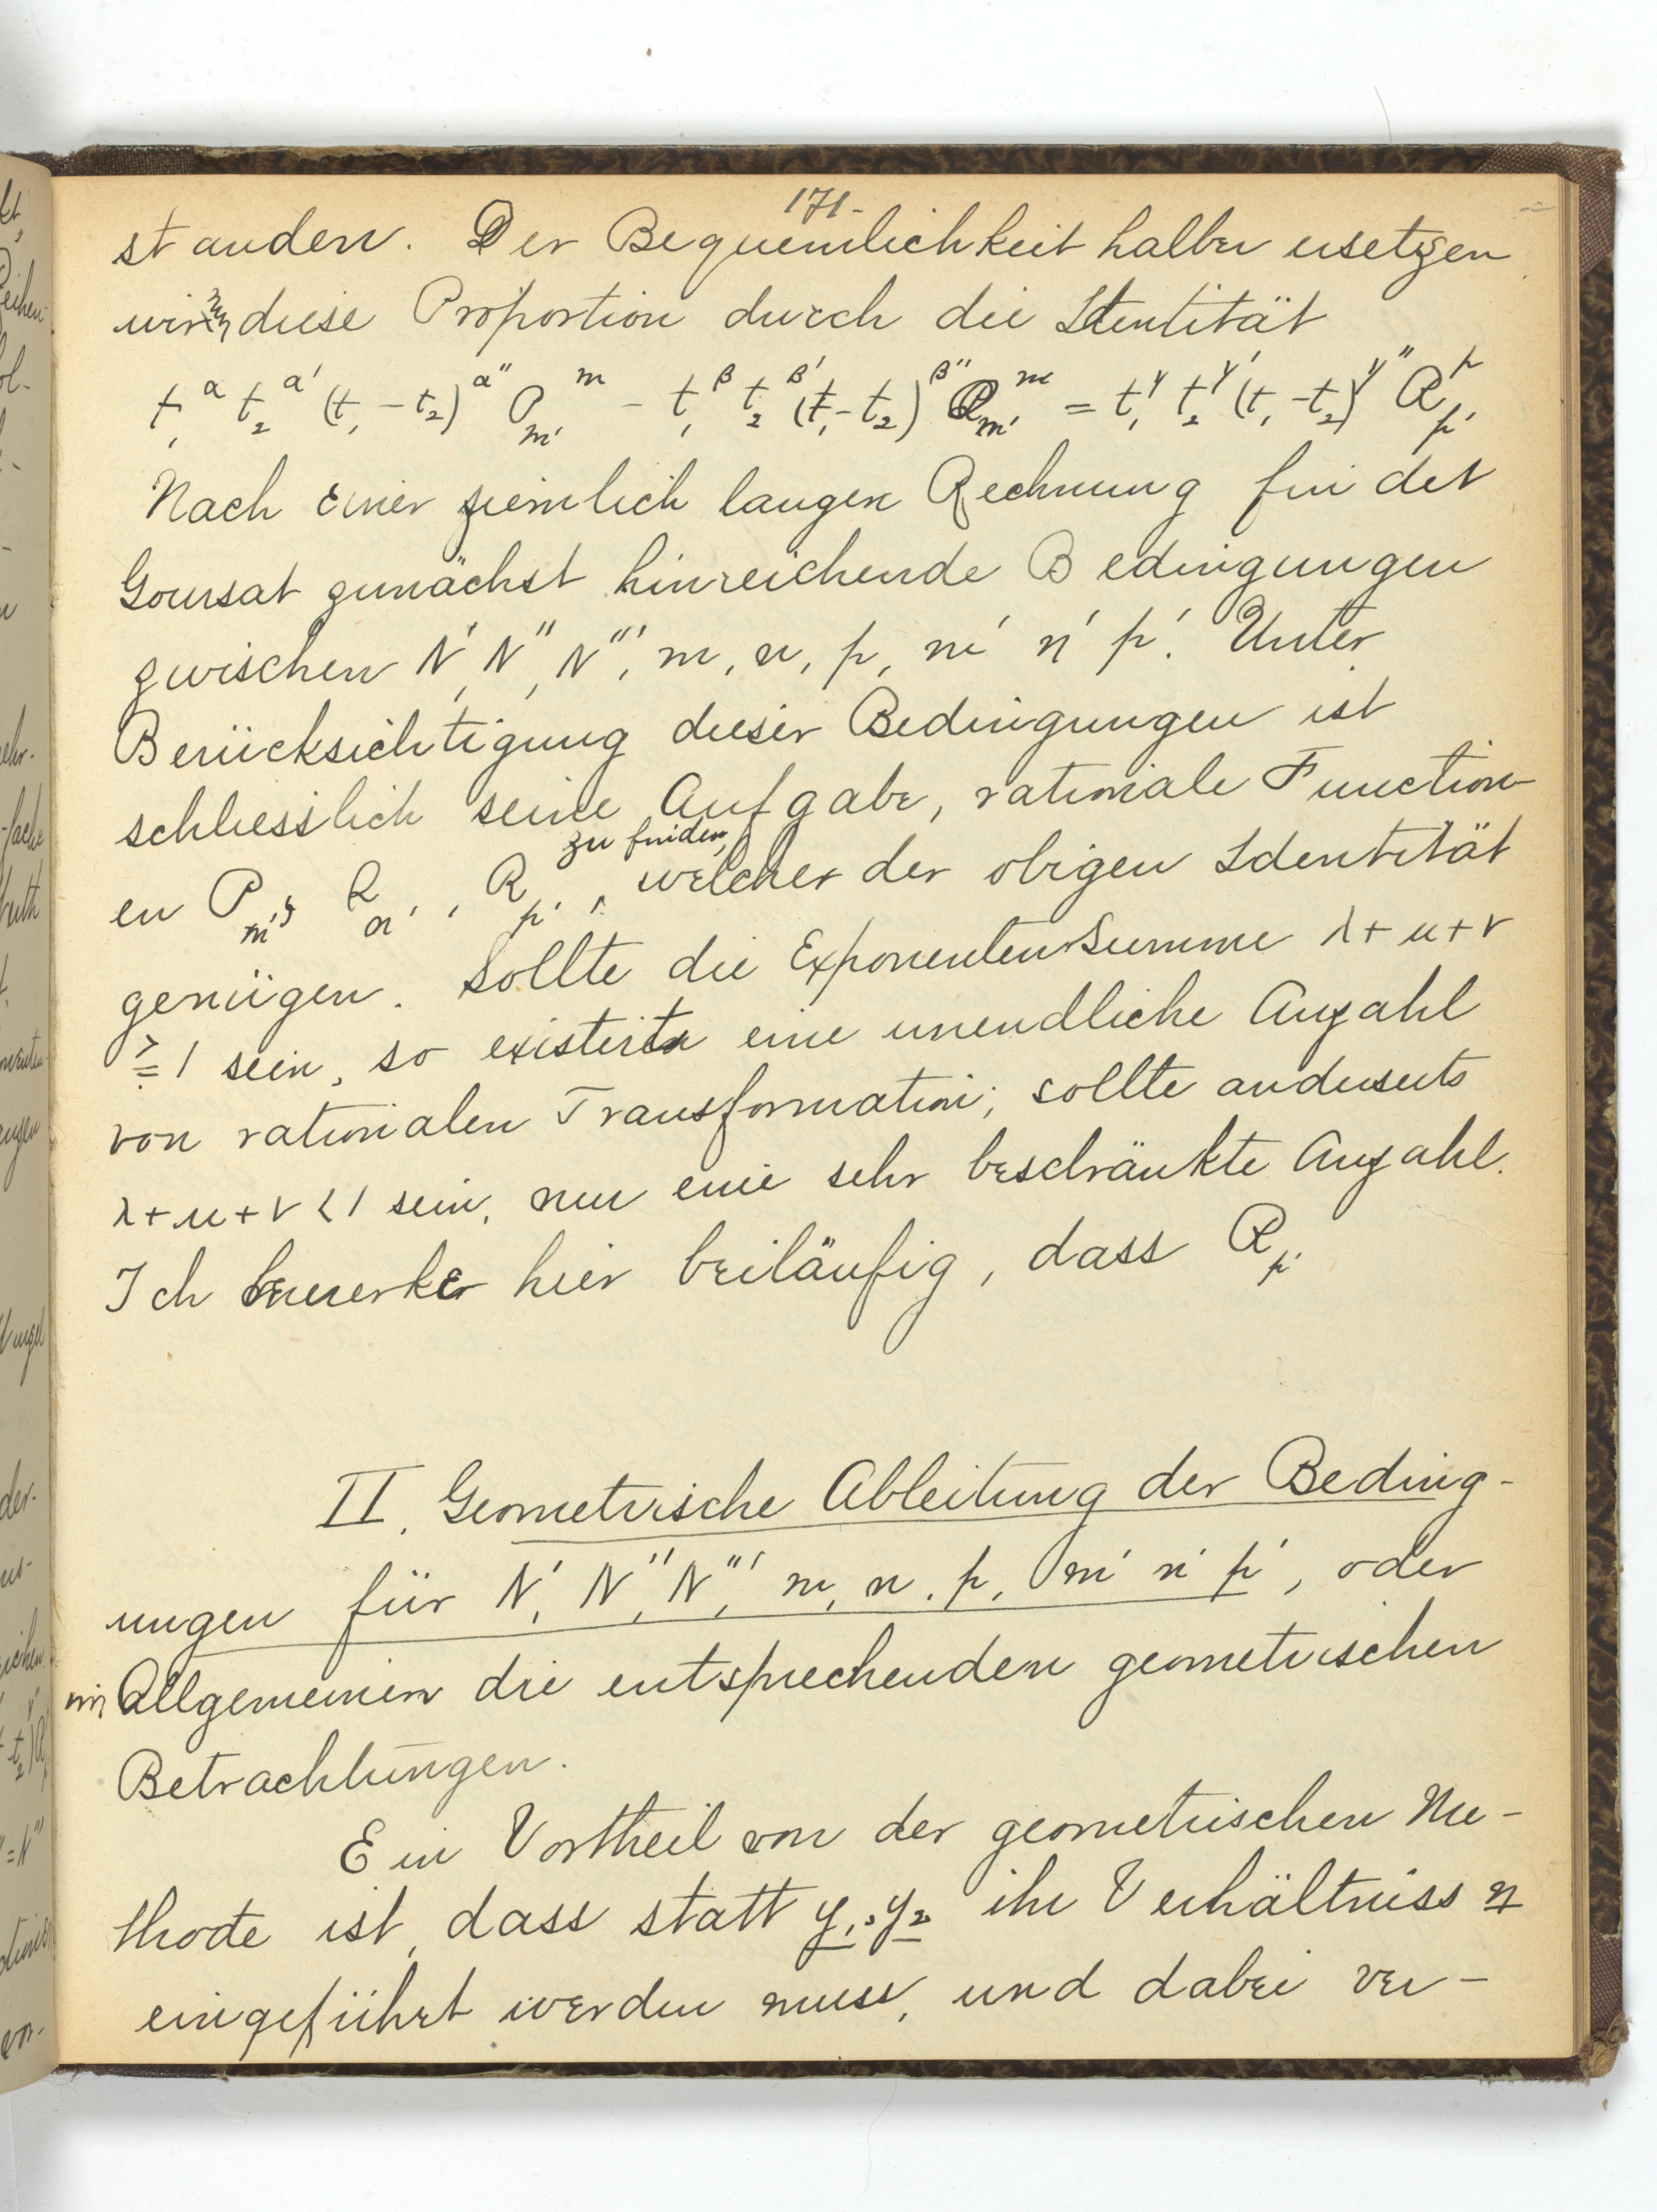 171.
standen. Der Bequemlichkeit halber ersetzen
wir diese Proportion durch die Identität
t₁^α t₂^α' (t₁ - t₂)^α'' P_m'^m - t₁^β t₂^β' (t₁ - t₂)^β'' Q_m'^m = t₁^γ t₂^γ' (t₁ - t₂)^γ'' R_p'^p
Nach einer ziemlich langen Rechnung findet
Goursat zunächst hinreichende Bedingungen
zwischen N', N'', N''', m, n, p, m' n' p'. Unter
Berücksichtigung dieser Bedingungen ist
schliesslich seine Aufgabe, rationale Function-
zu finden,
en P_m', Q_n', R_p', welche der obigen Identität
genügen. Sollte die Exponentensumme λ + μ + ν
≧ 1 sein, so existirt eine unendliche Anzahl
von rationalen Transformation; sollte anderseits
λ + μ + ν < 1 sein, nur eine sehr beschränkte Anzahl.
Ich bemerke hier beiläufig, dass R_p'
II. Geometrische Ableitung der Beding-
ungen für N', N'', N''', m, n, p, m' n' p', oder
im Allgemeinen die entsprechenden geometrischen
Betrachtungen.
Ein Vortheil von der geometrischen Me-
thode ist, dass statt y₁, y₂ ihr Verhältniss η
eingeführt werden muss, und dabei ver-